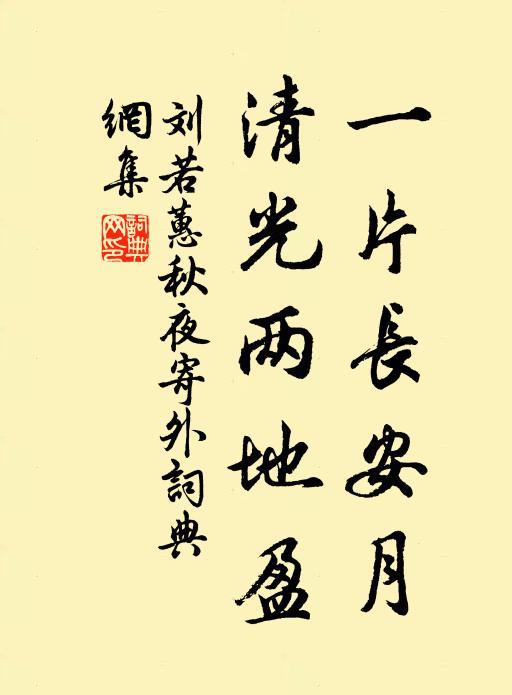 一片長安月
清光两地盈
刘若蕙秋夜寄外詞典
網集
詞典
网印